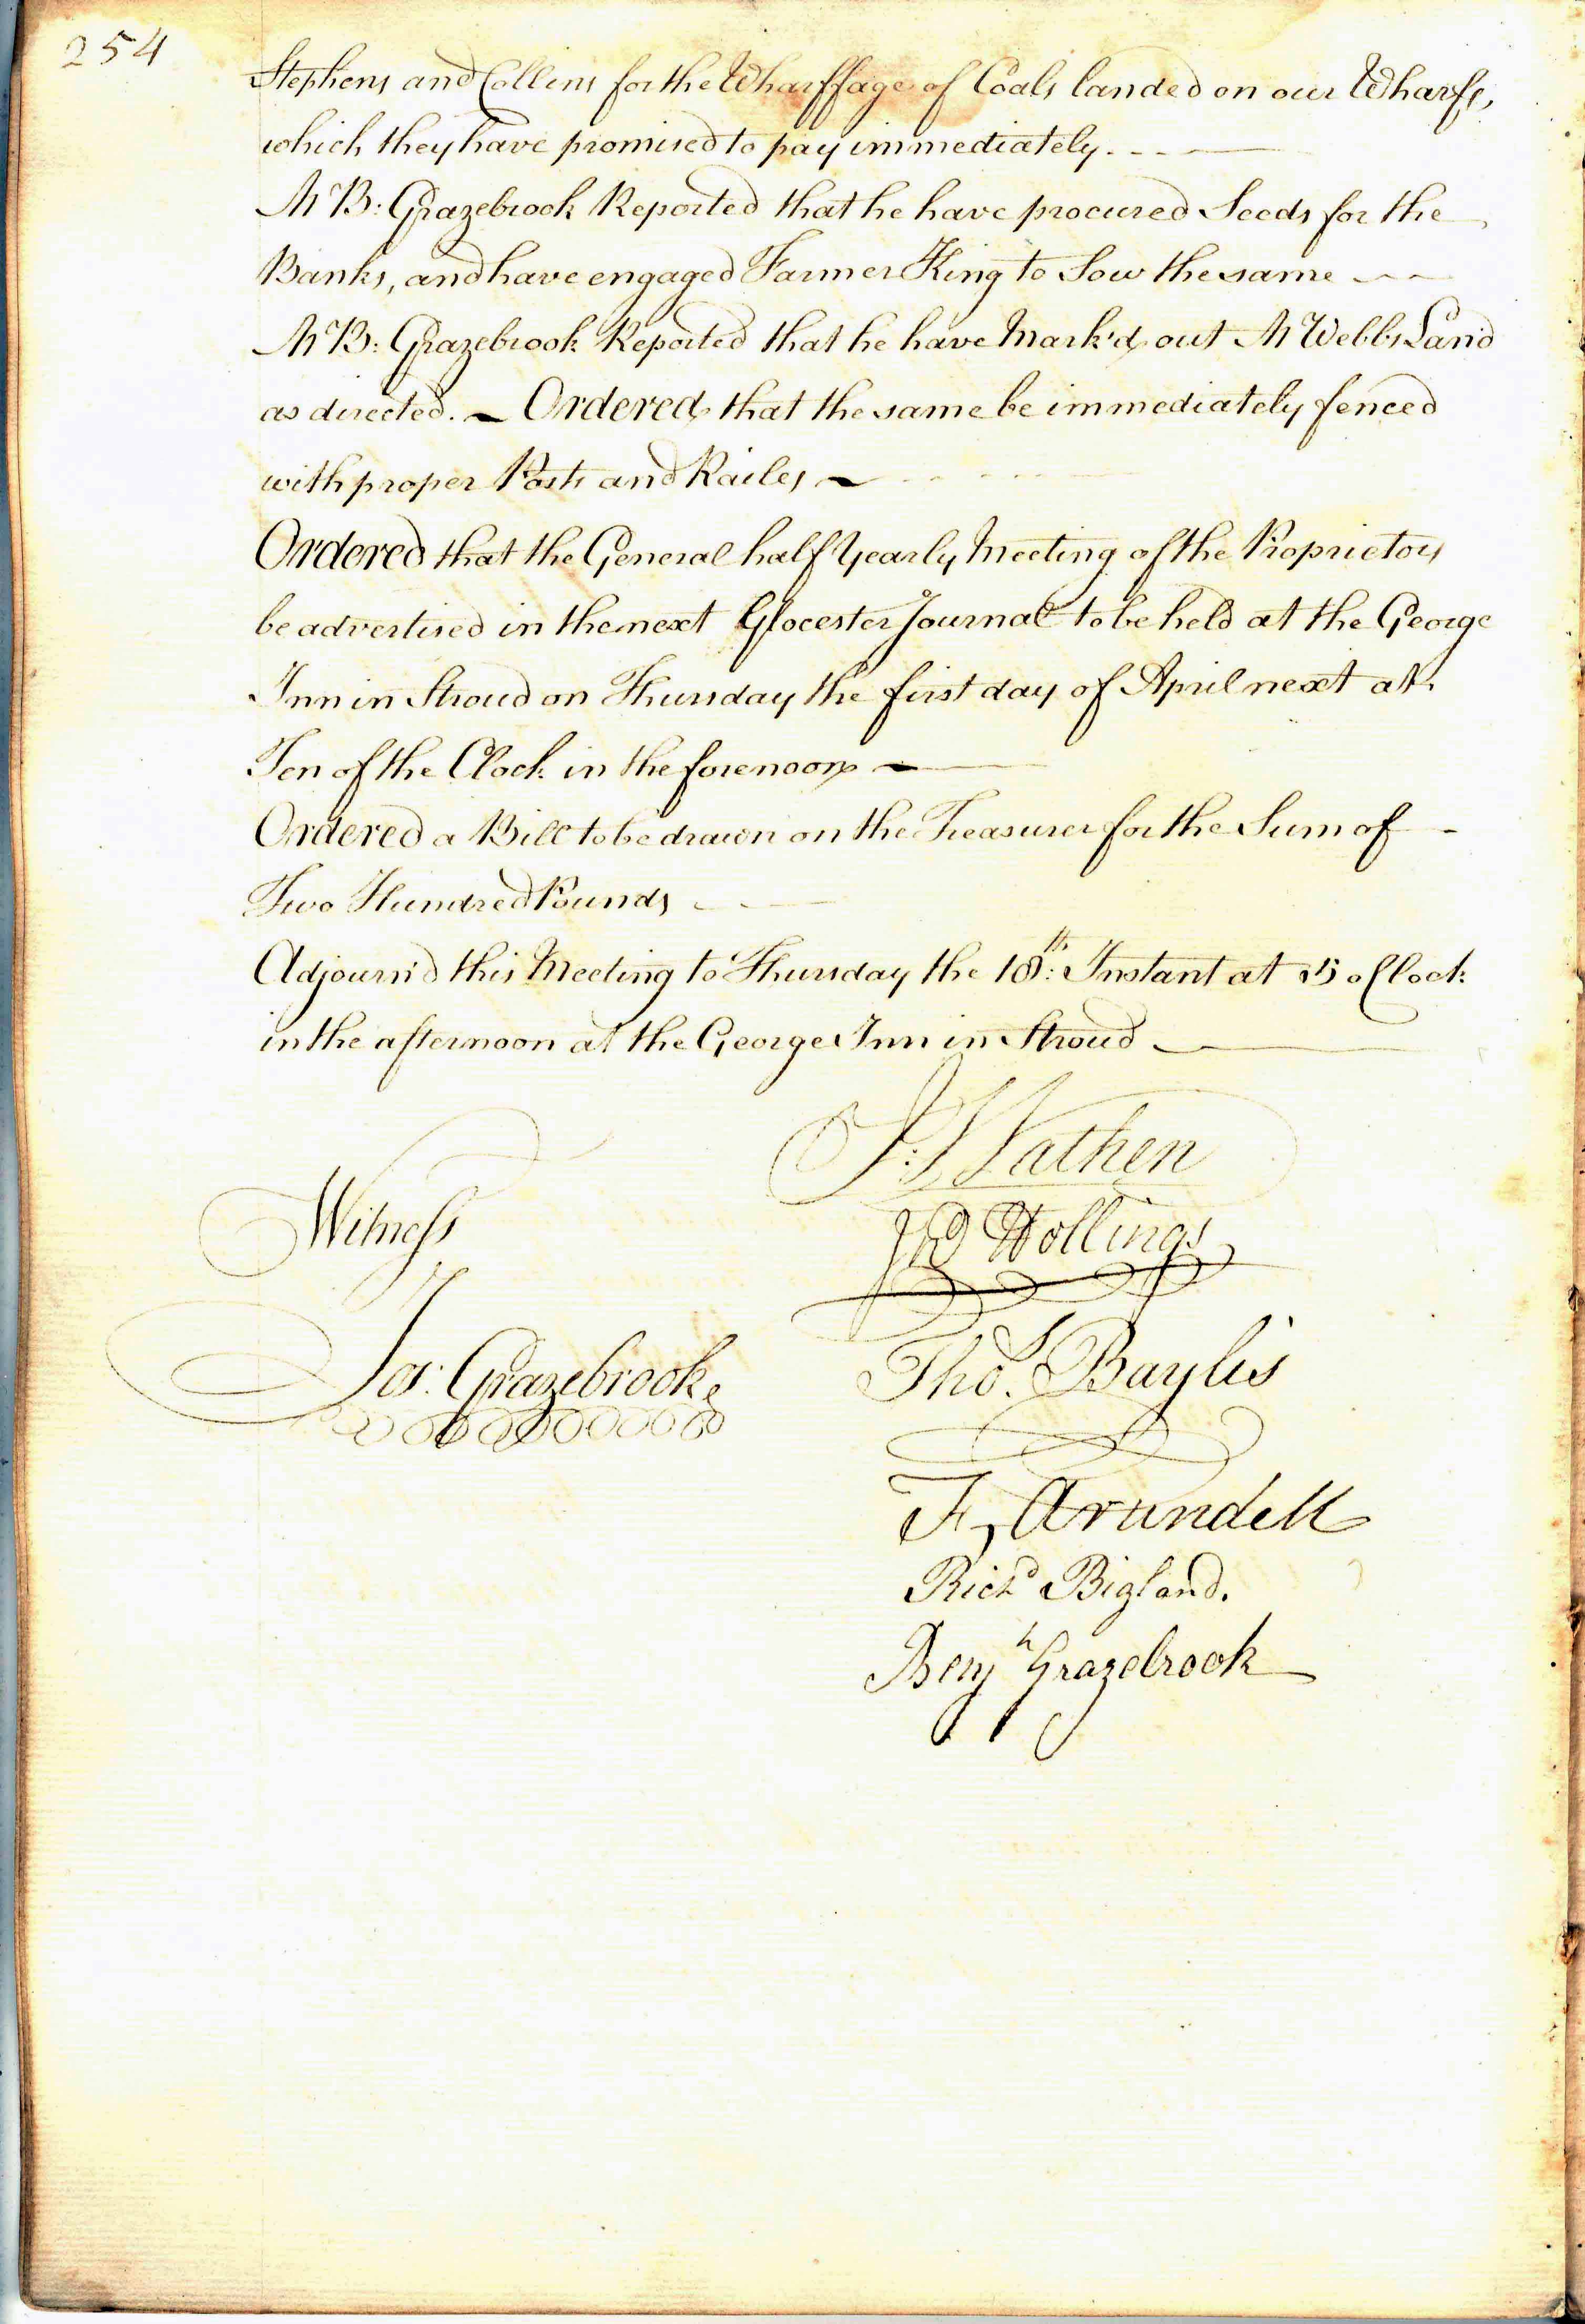 254
Stephens and Collins for the Wharffage of Coals landed on our Wharfs,
which they have promised to pay immediately.
Mr B: Grazebrook Reported that he have procured Seeds for the
Banks, and have engaged Farmer King to Sow the same
Mr B: Grazebrook Reported that he have Mark'd out Mr Webbs Land
as directed. Ordered that the same be immediately fenced
with proper Posts and Railes
Ordered that the General half Yearly Meeting of the Proprietors
be advertised in the next Glocester Journal to be held at the George
Inn in Stroud on Thursday the first day of April next at
Ten of the Clock in the forenoon
Ordered a Bill to be drawn on the Treasurer for the Sum of
Two Hundred Pounds
Adjourn'd this Meeting to Thursday the 18th: Instant at 5 o Clock
in the afternoon at the George Inn in Stroud
J: Wathen
Witness
Jno Hollings
Jos: Grazebrook
Thos. Baylis
F, Arundell
Richd Bigland.
Benjn Grazebrook